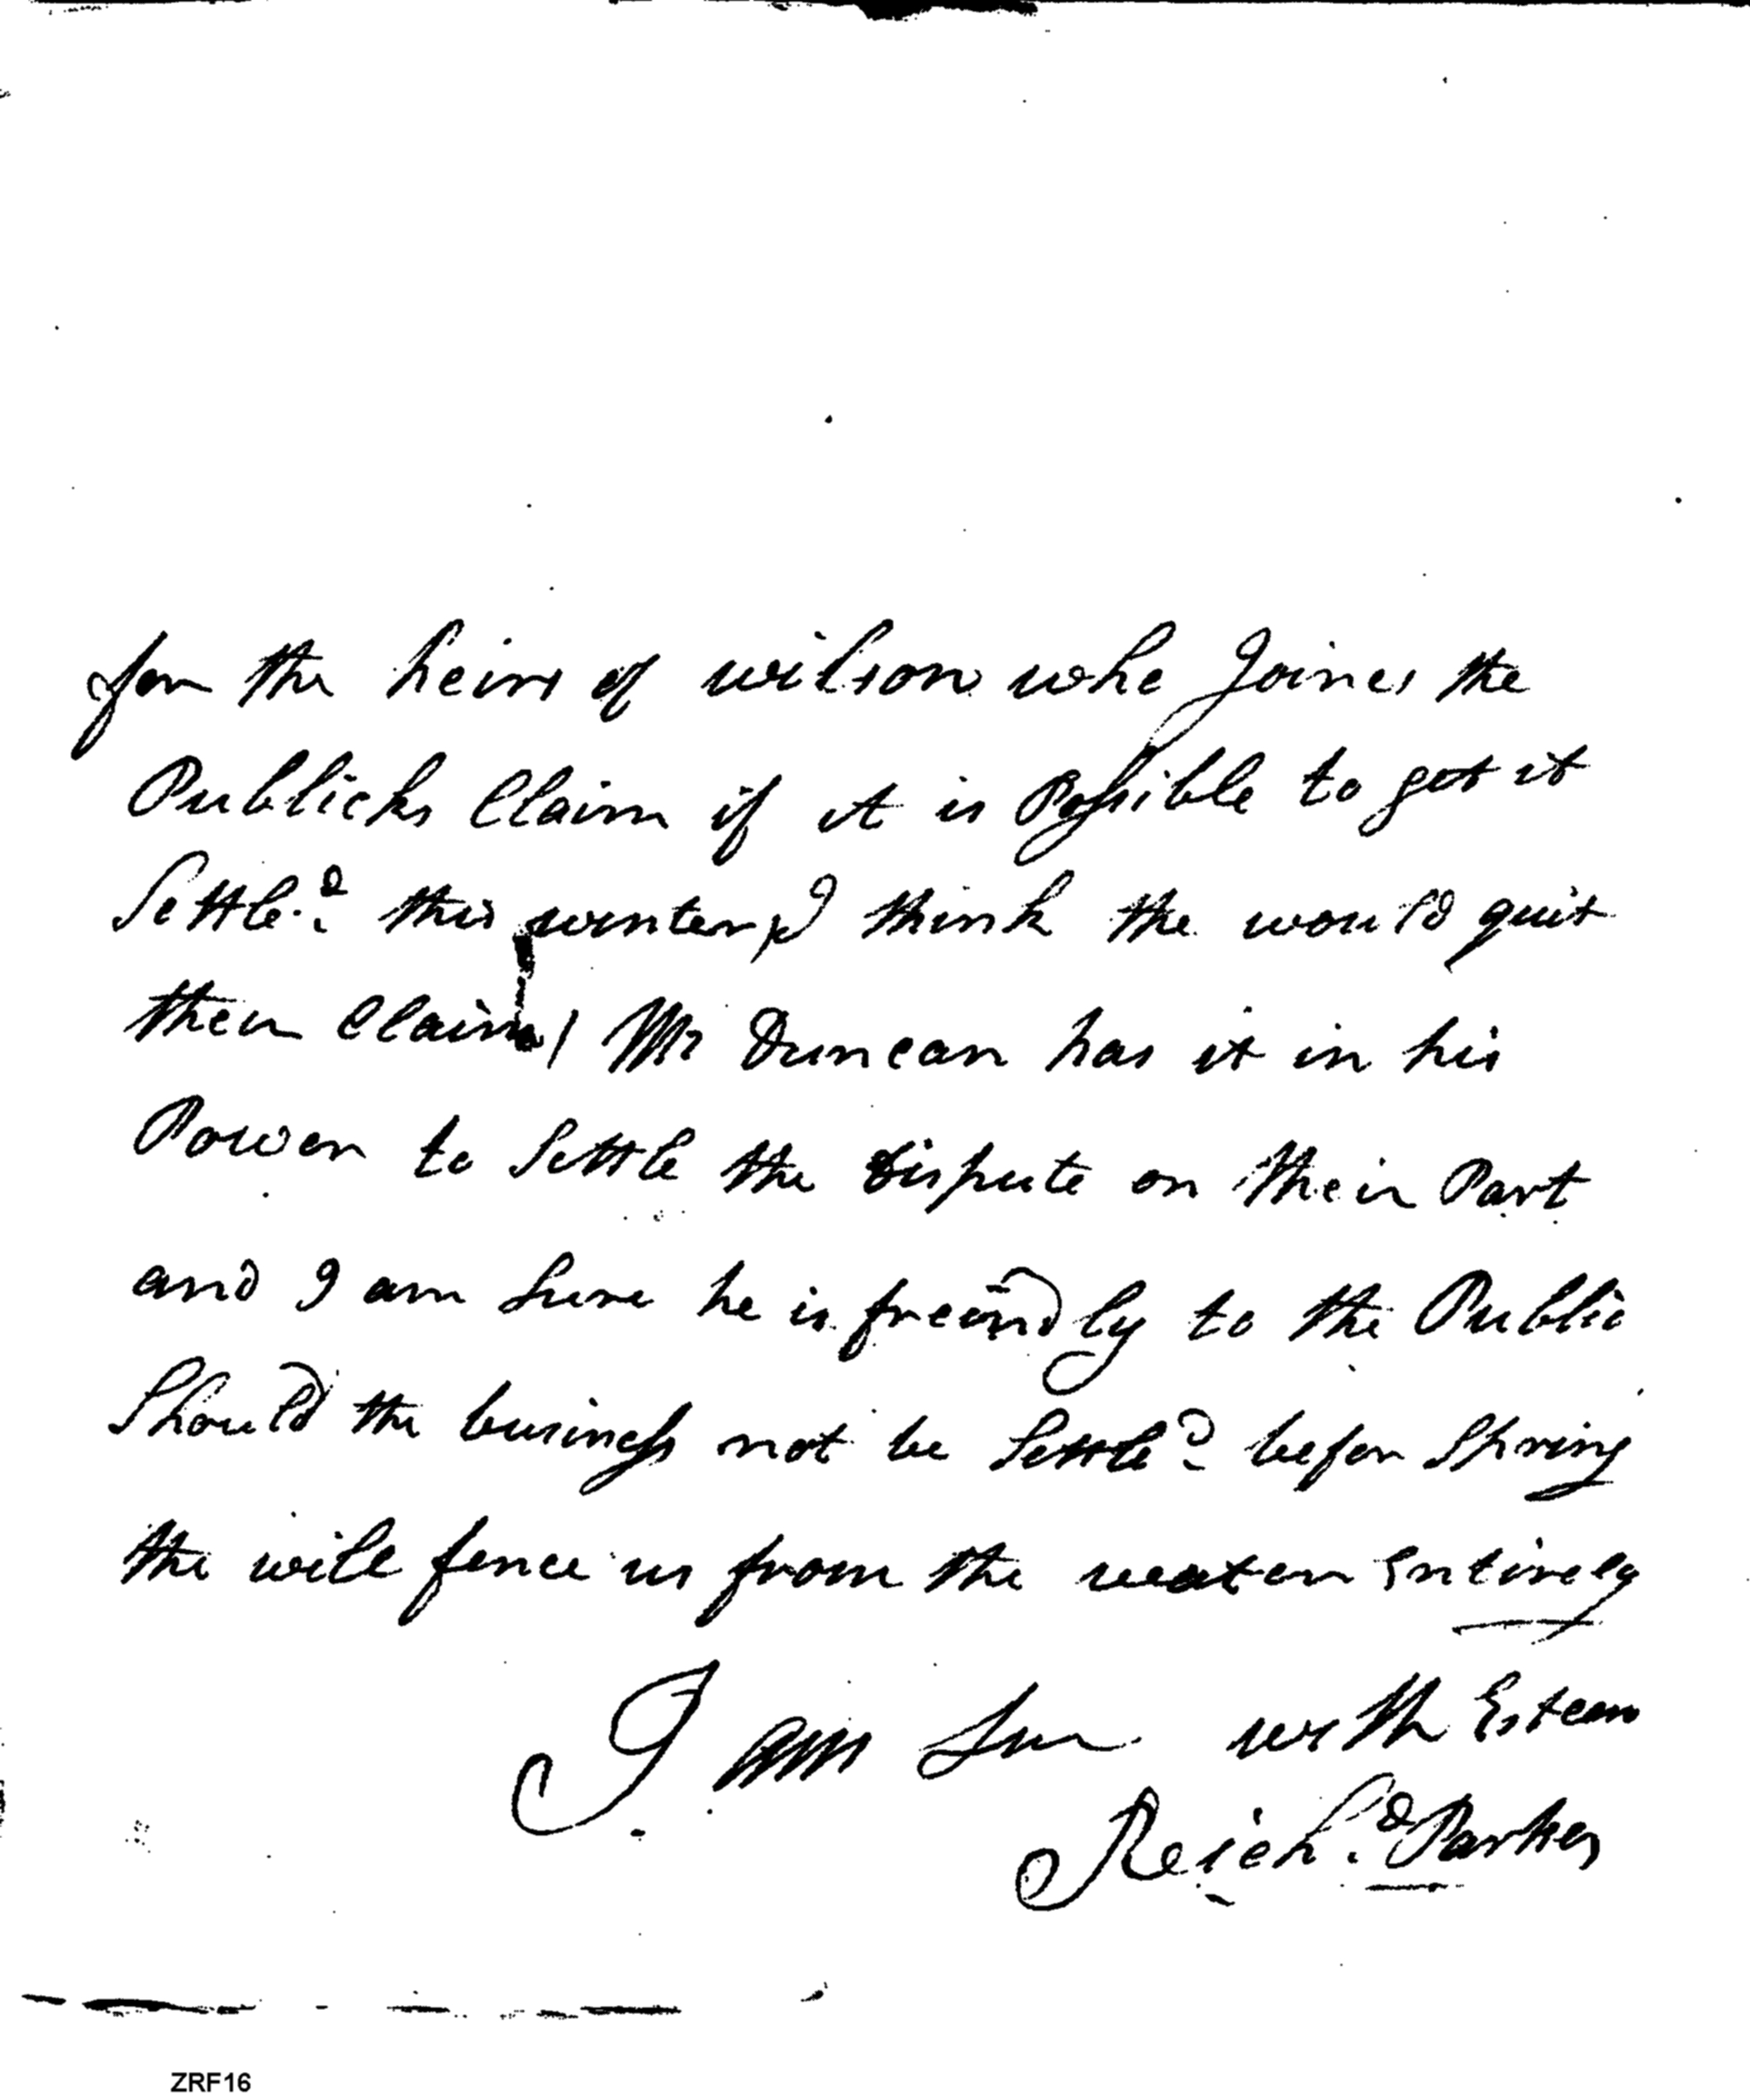 for the heirs of wilson who Joines the
Publicks Claim if it is Possible to get it
Settle.d this winter I think the would quit
their Claim / Mr Duncan has it in his
Power to Settle the dispute on their Part
and I am Sure he is freindly to the Public
Should the business not be Settled befor Spring
the will fence us from the water Entirely
I am Sir with Esteem
Reichd Parker
ZRF16